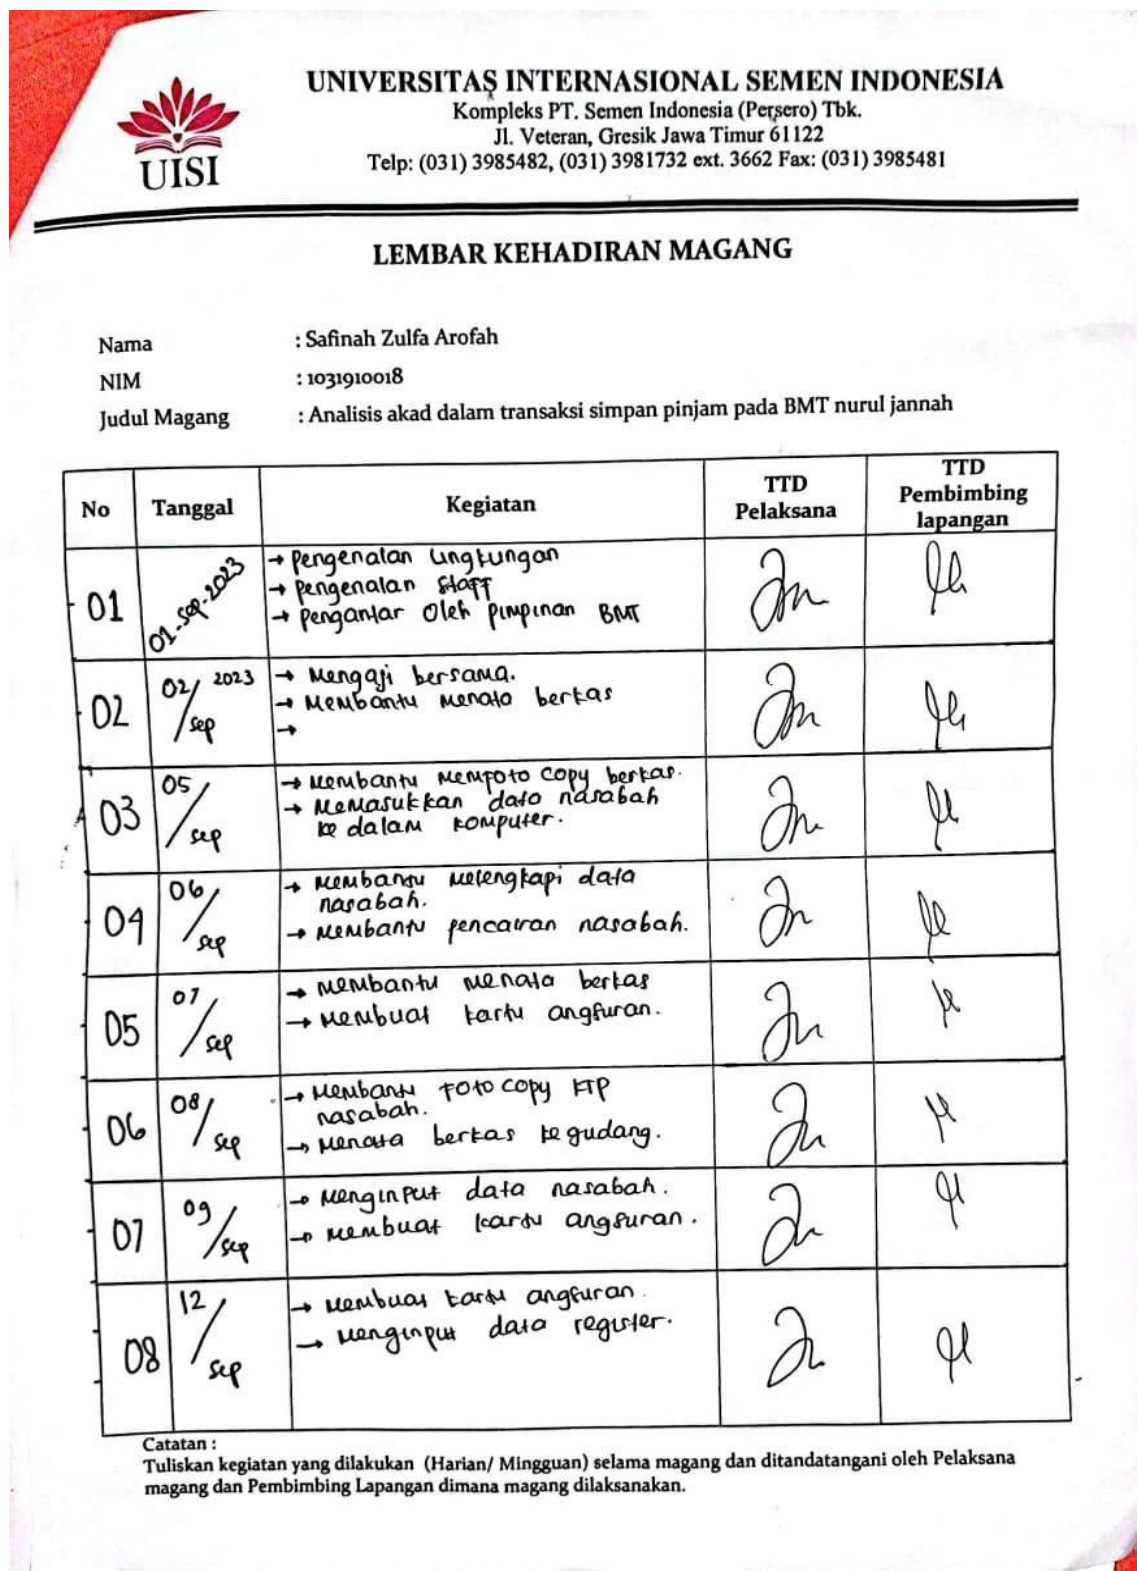 UNIVERSITAS INTERNASIONAL SEMEN INDONESIA
Kompleks PT. Semen Indonesia (Persero) Tbk.
Jl. Veteran, Gresik Jawa Timur 61122
Telp: (031) 3985482, (031) 3981732 ext. 3662 Fax: (031) 3985481
UISI
LEMBAR KEHADIRAN MAGANG
Nama : Safinah Zulfa Arofah
NIM : 1031910018
Judul Magang : Analisis akad dalam transaksi simpan pinjam pada BMT nurul jannah
No Tanggal Kegiatan TTD Pelaksana TTD Pembimbing lapangan
01 01-sep-2023 → Pengenalan lingkungan
→ Pengenalan staff
→ Pengantar Oleh Pimpinan BMT
02 02/sep 2023 → Mengaji bersama.
→ Membantu menata berkas
→
03 05/sep → Membantu memfoto copy berkas.
→ Memasukkan data nasabah
ke dalam komputer.
04 06/sep → Membantu melengkapi data
nasabah.
→ Membantu pencairan nasabah.
05 07/sep → Membantu menata berkas
→ Membuat kartu angsuran.
06 08/sep → Membantu Foto copy KTP
nasabah.
→ Menata berkas ke gudang.
07 09/sep → Menginput data nasabah.
→ Membuat kartu angsuran.
08 12/sep → Membuat kartu angsuran.
→ Menginput data register.
Catatan :
Tuliskan kegiatan yang dilakukan (Harian/ Mingguan) selama magang dan ditandatangani oleh Pelaksana
magang dan Pembimbing Lapangan dimana magang dilaksanakan.